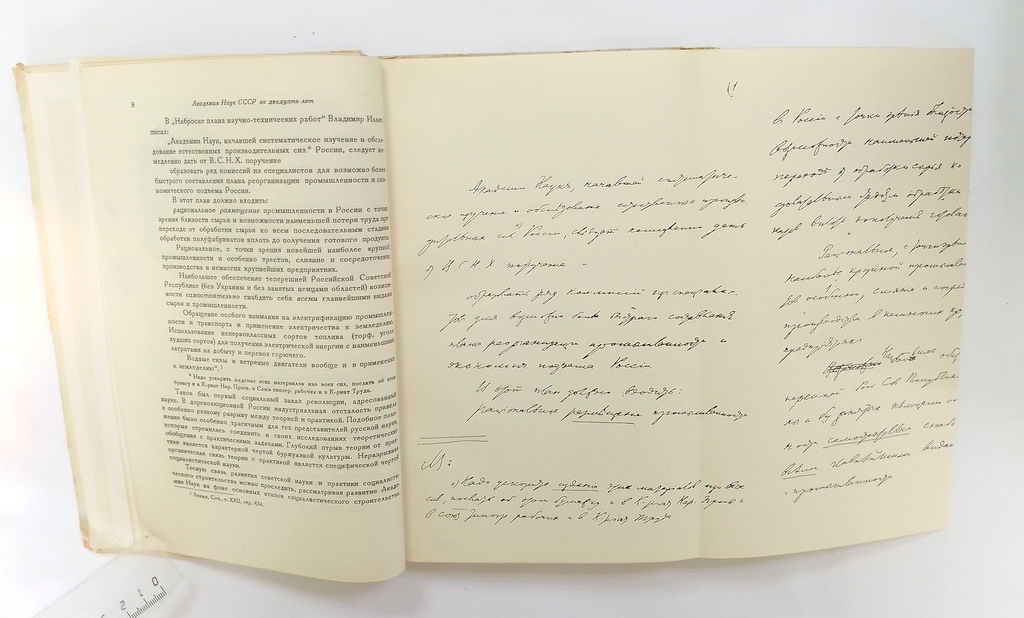 8
Академия Наук СССР за двадцать лет
В „Наброске плана научно-технических работ“ Владимир Ильич
писал:
„Академии Наук, начавшей систематическое изучение и обсле-
дование естественных производительных сил* России, следует не-
медленно дать от В.С.Н.Х. поручение
образовать ряд комиссий из специалистов для возможно более
быстрого составления плана реорганизации промышленности и эко-
номического подъема России.
В этот план должно входить:
рациональное размещение промышленности в России с точки
зрения близости сырья и возможности наименьшей потери труда при
переходе от обработки сырья ко всем последовательным стадиям
обработки полуфабрикатов вплоть до получения готового продукта.
Рациональное, с точки зрения новейшей наиболее крупной
промышленности и особенно трестов, слияние и сосредоточение
производства в немногих крупнейших предприятиях.
Наибольшее обеспечение теперешней Российской Советской
Республике (без Украины и без занятых немцами областей) возмож-
ности самостоятельно снабдить себя всеми главнейшими видами
сырья и промышленности.
Обращение особого внимания на электрификацию промышлен-
ности и транспорта и применение электричества к земледелию.
Использование непервоклассных сортов топлива (торф, уголь
худших сортов) для получения электрической энергии с наименьшими
затратами на добычу и перевоз горючего.
Водные силы и ветряные двигатели вообще и в применении
к земледелию“.¹
* Надо ускорить издание этих материалов изо всех сил, послать об этом
бумагу и в К-риат Нар. Просв. в Союз типогр. рабочих и в К-риат Труда.
Таков был первый социальный заказ революции, адресованный
науке. В дореволюционной России индустриальная отсталость привела
к особенно резкому разрыву между теорией и практикой. Подобное поло-
жение было особенно трагичным для тех представителей русской науки,
которые стремились соединить в своих исследованиях теоретические
обобщения с практическими задачами. Глубокий отрыв теории от прак-
тики является характерной чертой буржуазной культуры. Неразрывная
органическая связь теории с практикой является специфической чертой
социалистической науки.
Тесную связь развития советской науки и практики социалисти-
ческого строительства можно проследить, рассматривая развитие Акаде-
мии Наук на фоне основных этапов социалистического строительства.
¹ Ленин, Соч., т. XXII, стр. 434.
Академии Наук, начавшей систематиче-
ское изучение и обследование естественных произво-
дительных сил*) России, следует немедленно дать
от В С Н Х поручение
образовать ряд комиссий из специалис-
тов для возможно более быстрого составления
плана реорганизации промышленности и
экономич подъема России.
В этот план должно входить:
рациональное размещение промышленности
*) Надо ускорить издание этих материалов изо всех
сил, послать об этом бумажку и в К-риат Нар. Просв и
в союз типогр рабочих и в К-риат Труда.
в России с точки зрения близости
возможности наименьшей потери
переходе от обработки сырья ко
довательным стадиям обработки
катов вплоть до получения готового
Рациональное, с точки зрения
наиболее крупной промышленно
тов особенно, слияние и сосред
производства в немногих кр
предприятиях.
Наибольшее обес
перешней Рос Сов Республике
ны и без занятых немцами о
ности самостоятельно снаб
всеми главнейшими видами
промышленности
0 1 2